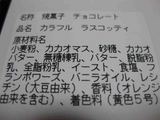 名称 焼菓子 チョコレート
品名 カラフル ラスコッティ
小麦粉、カカオマス、砂糖、カカオ
バター、無糖練乳、バター、脱脂粉
乳、全脂粉乳、イースト、食塩、フ
ランボワーズ、バニラオイル、レシ
チン(大豆由来)、香料(オレンジ
由来を含む)、着色料(黄色5号)